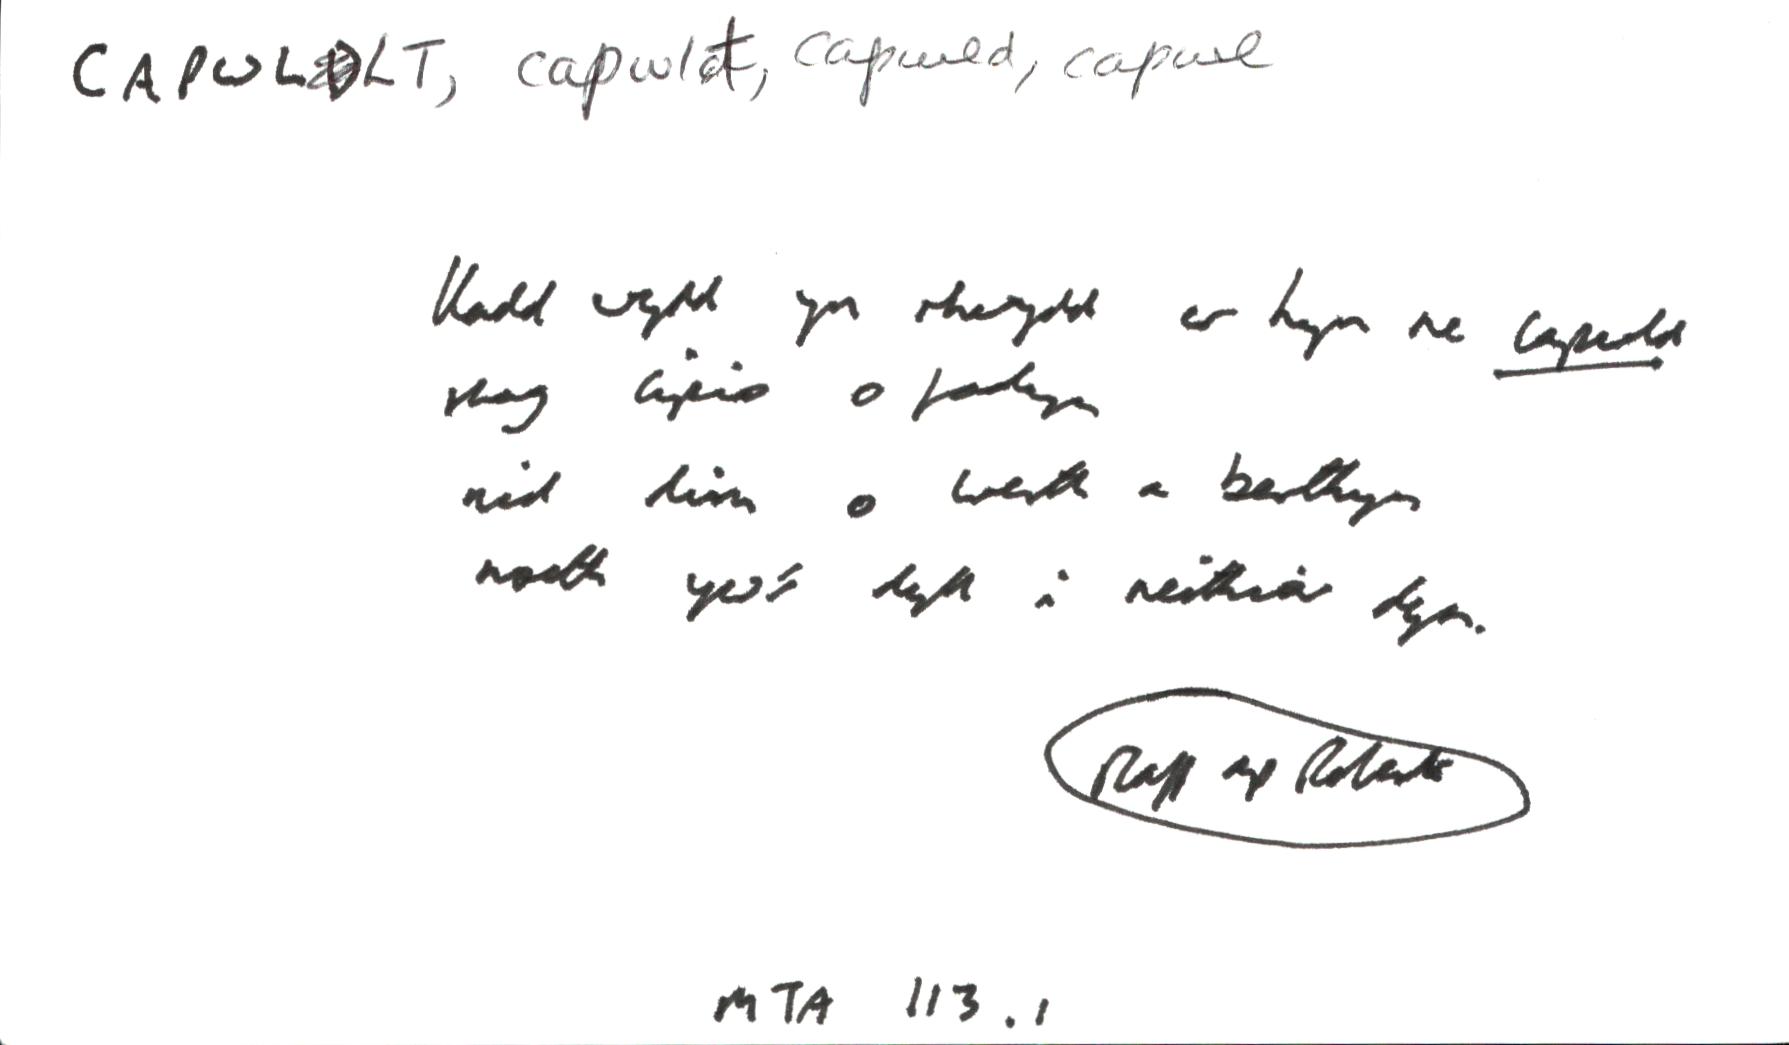 CAPWLLT, capwlt, capwld, capwl
Hadd wydd yn rhwydd er hyn ne capwld
rhag cipio o
nid dim o werth a berthyn
noeth yw'r dyll i neithiar dyn.
Raff ap Roberts
MTA 113.1